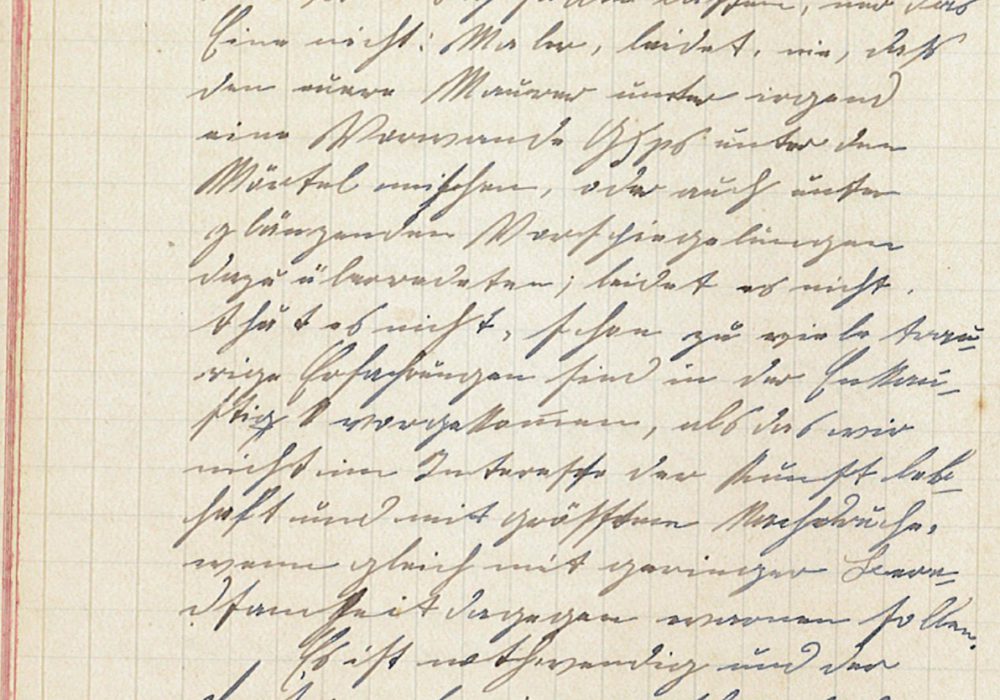 das
Eine nicht: Maler, leidet, nie, daß
den euere Maurer unter irgend
eine Vorwande Gyps unter den
Mörtel mischen, oder auch unter
glänzenden Vorspiegelungen
dazu überredeten; leidet es nicht,
thut es nicht, schon zu viele trau-
rige Erfahrungen sind in der Enkau-
stig vorgekomen, als das wir
nicht im Interesse der Kunst leb-
haft und mit größtem Nachdrucke,
wenn gleich mit geringer Bere-
dsamkeit dagegen warnen sollen.
Es ist nothwendig und der